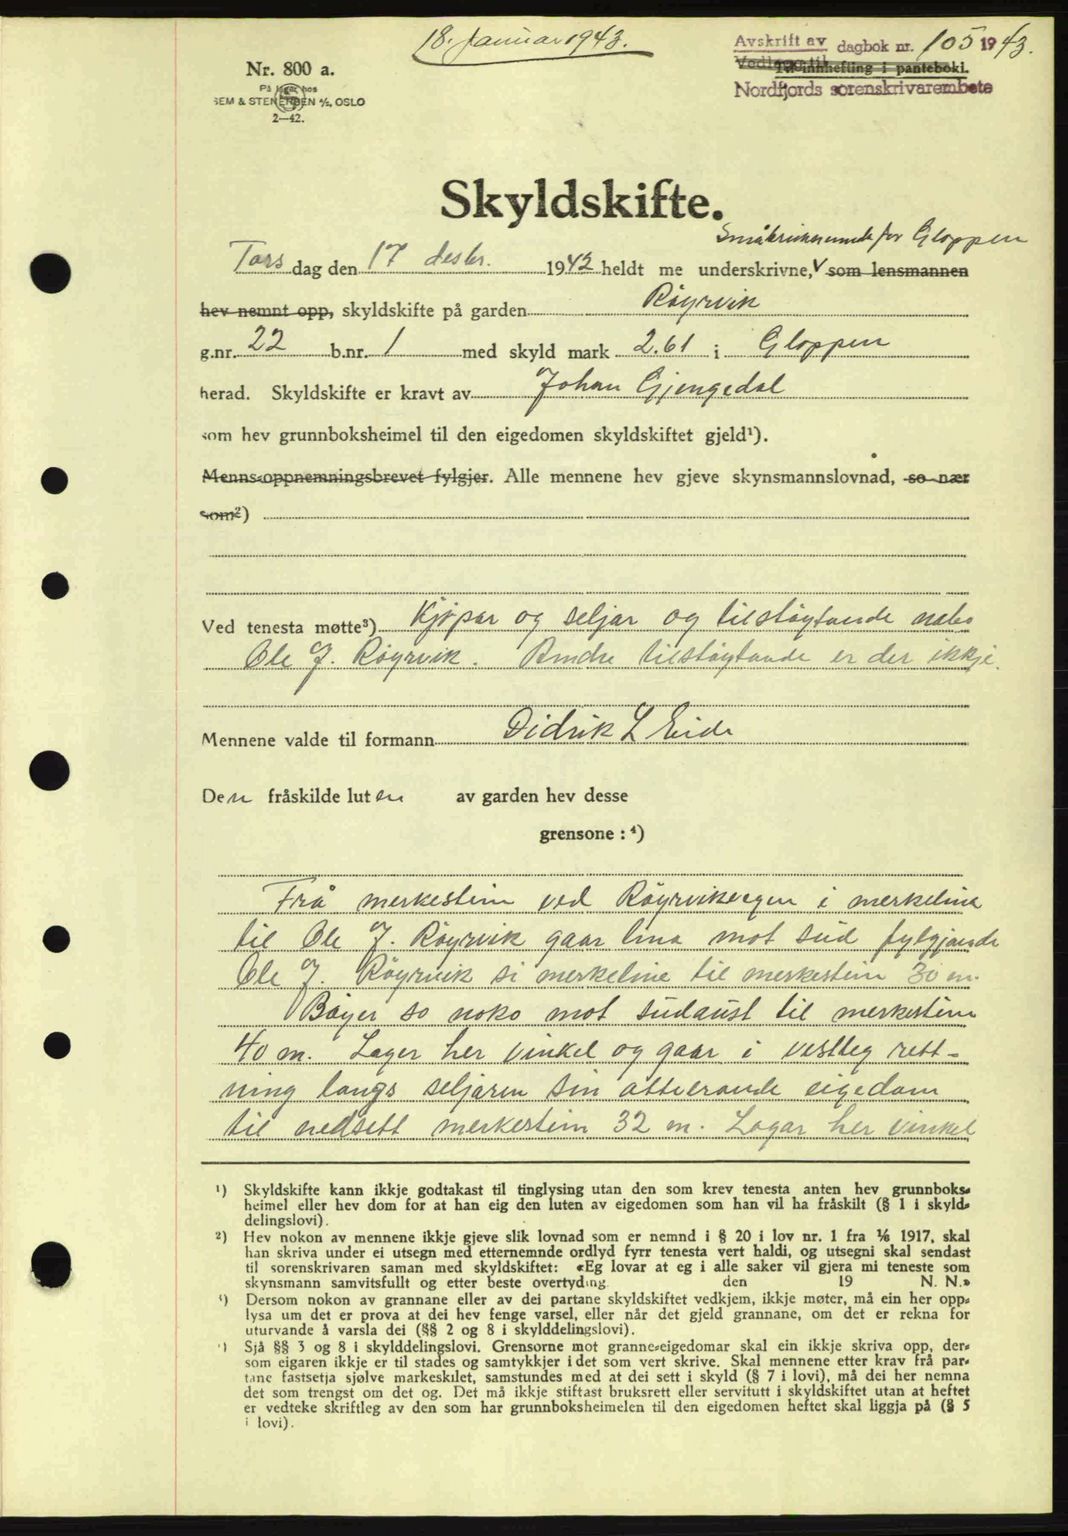 18. Januar 1943.
Avskrift av dagbok nr. 105 1943.
Vedlegg til
Til innhefting i panteboki.
Nordfjords sorenskrivarembete
Nr. 800 a.
På lager hos
SEM & STENERSEN A/S, OSLO
2—42.
Skyldskifte.
Småbrukarnemnda for Gloppen
Tors dag den 17 desbr. 1942 heldt me underskrivne, V som lensmannen
hev nemnt opp, skyldskifte på garden Røyrvik
g.nr. 22 b.nr. 1 med skyld mark 2.61 i Gloppen
herad. Skyldskifte er kravt av Johan Gjengedal
som hev grunnboksheimel til den eigedomen skyldskiftet gjeld¹).
Menns-oppnemningsbrevet fylgjer. Alle mennene hev gjeve skynsmannslovnad, so nær
som²)
Ved tenesta møtte³) Kjøpar og seljar og tilstøytande nabo
Ole J. Røyrvik. Andre tilstøytande er der ikkje.
Mennene valde til formann Didrik L Eide
Den fråskilde luten av garden hev desse
grensone : ⁴)
Frå merkestein ved Røyrvikvegen i merkelina
til Ole J. Røyrvik gaar lina mot sud fylgjande
Ole J. Røyrvik si merkeline til merkestein 30 m.
Bøyer so noko mot sudaust til merkestein
40 m. Lager her vinkel og gaar i vestleg rett-
ning langs seljaren sin attverande eigedom
til nedsett merkestein 32 m. Lagar her vinkel
¹) Skyldskifte kann ikkje godtakast til tinglysing utan den som krev tenesta anten hev grunnboks-
heimel eller hev dom for at han eig den luten av eigedomen som han vil ha fråskilt (§ 1 i skyld-
delingslovi).
²) Hev nokon av mennene ikkje gjeve slik lovnad som er nemnd i § 20 i lov nr. 1 fra 1/6 1917, skal
han skriva under ei utsegn med etternemnde ordlyd fyrr tenesta vert haldi, og utsegni skal sendast
til sorenskrivaren saman med skyldskiftet: «Eg lovar at eg i alle saker vil gjera mi teneste som
skynsmann samvitsfullt og etter beste overtyding. den 19 N. N.»
³) Dersom nokon av grannane eller av dei partane skyldskiftet vedkjem, ikkje møter, må ein her opp-
lysa um det er prova at dei hev fenge varsel, eller når det gjeld grannane, om det er rekna for
uturvande å varsla dei (§§ 2 og 8 i skylddelingslovi).
⁴) Sjå §§ 3 og 8 i skylddelingslovi. Grensorne mot granne-eigedomar skal ein ikkje skriva opp, der-
som eigaren ikkje er til stades og samtykkjer i det som vert skrive. Skal mennene etter krav frå par-
tane fastsetja sjølve markeskilet, samstundes med at dei sett i skyld (§ 7 i lovi), må dei her nemna
det som trengst om det og. Det må ikkje stiftast bruksrett eller servitutt i skyldskiftet utan at heftet
er vedteke skriftleg av den som har grunnboksheimelen til den eigedomen heftet skal liggja på (§ 5
i lovi).